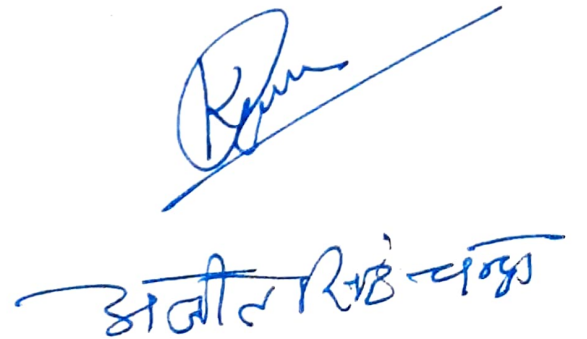 अजीत सिंह चन्द्रा